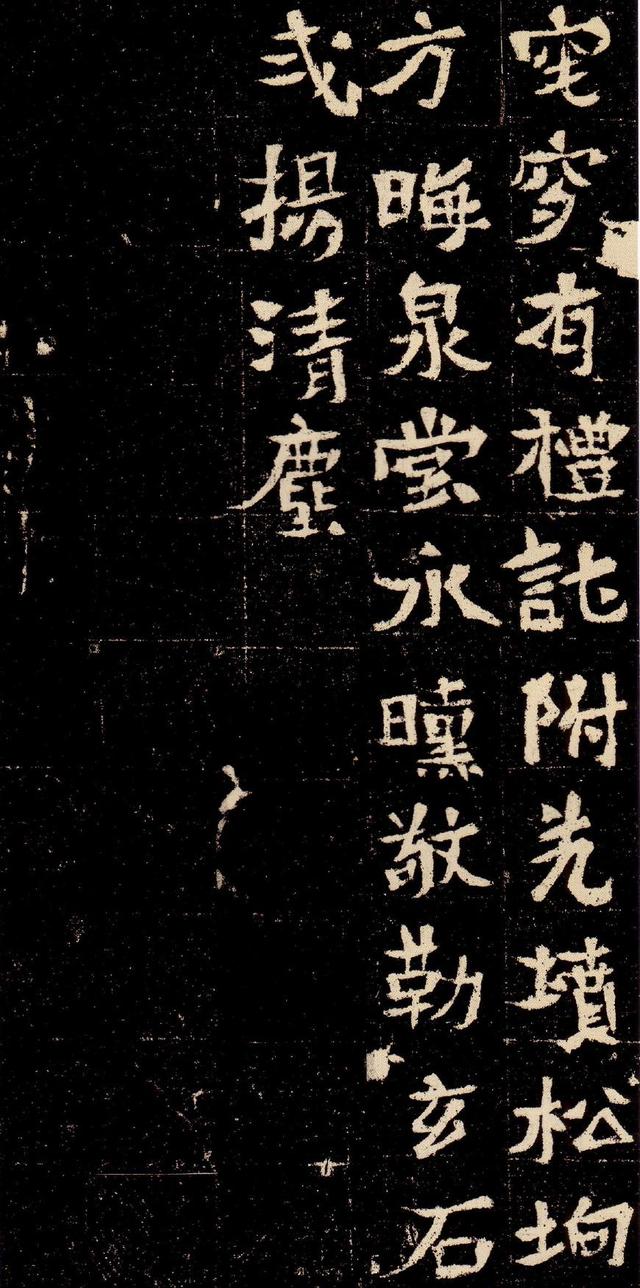 窀穸有禮託附先墳松垧
方晦泉堂永曛敬勒玄石
式揚清塵